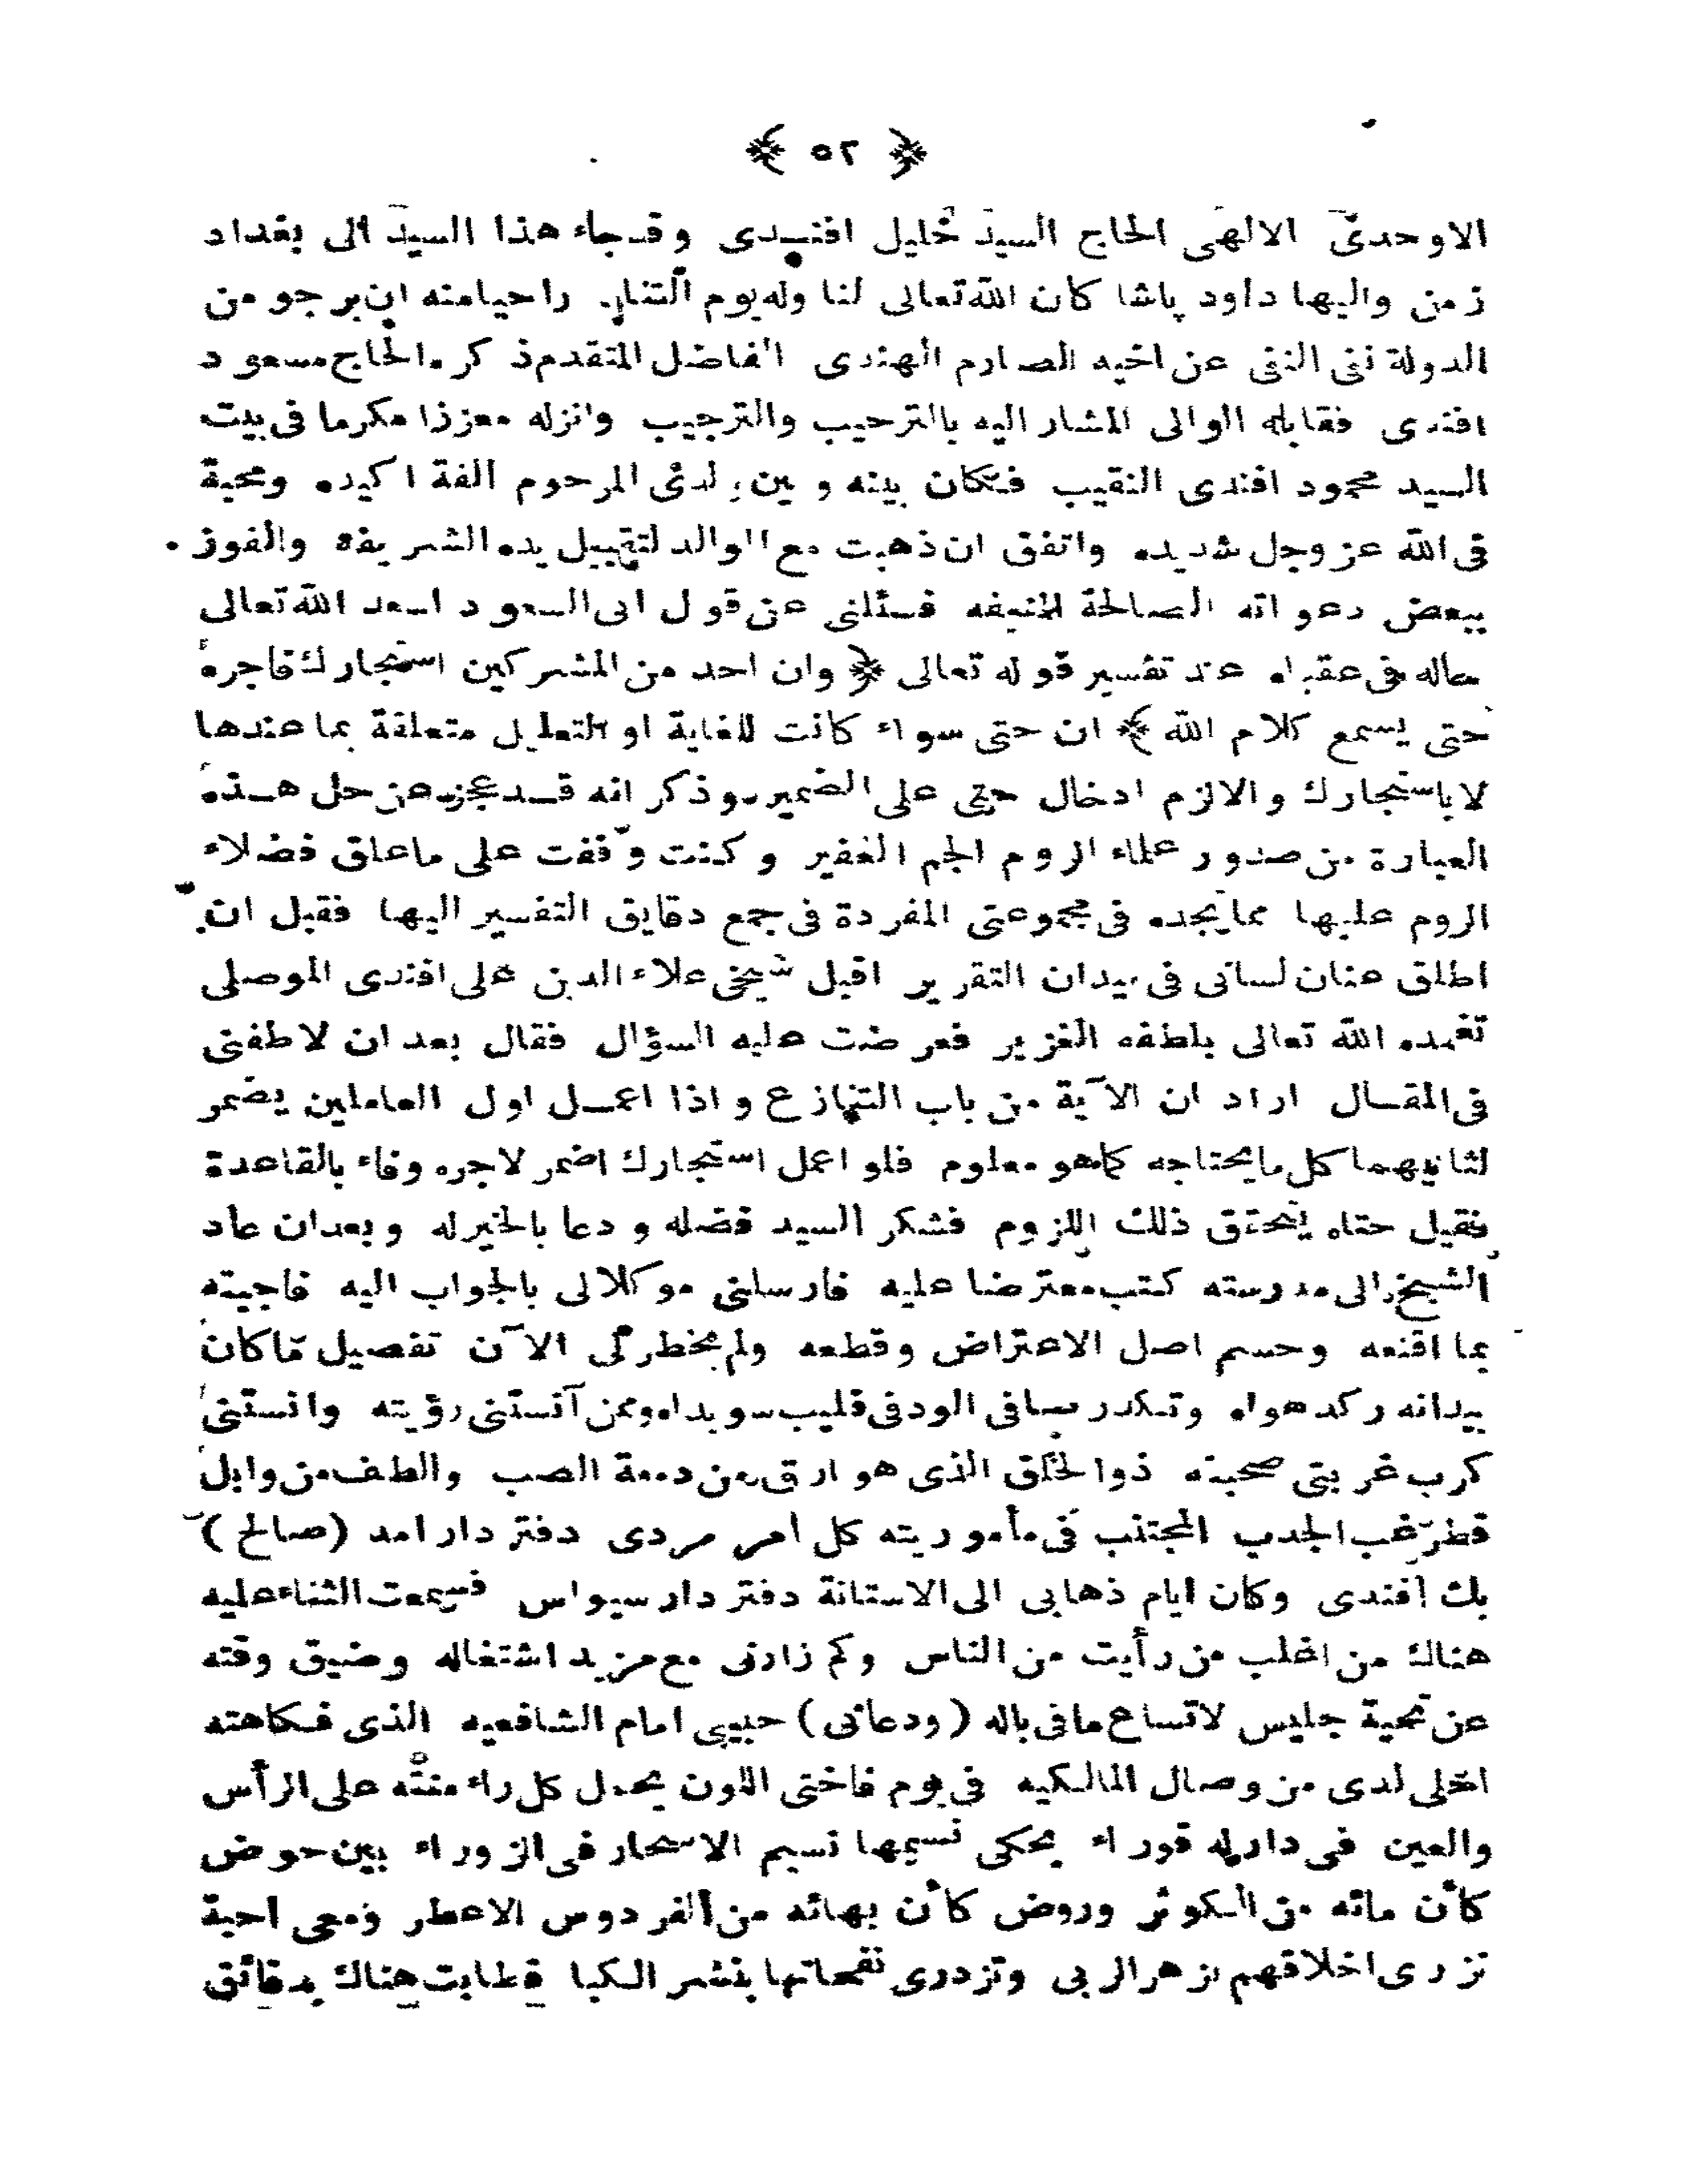 ﴿ ٥٢ ﴾
الاوحدى الالهى الحاج السيد خليل افندى وقد جاء هذا السيد الى بغداد
زمن واليها داود پاشا كان الله تعالى لنا وله يوم التناد راجيا منه ان يرجو من
الدولة نفى النفى عن اخيه الصارم الهندى الفاضل المتقدم ذكره الحاج مسعود
افندى فقابله الوالى المشار اليه بالترحيب والترجيب وانزله معززا مكرما فى بيت
السيد محمود افندى النقيب فكان بينه وبين لدى المرحوم الفة اكيده ومحبة
فى الله عز وجل شديده واتفق ان ذهبت مع الوالد لتقبيل يده الشريفة والفوز
ببعض دعواته الصالحة المنيفه فسئلنى عن قول ابى السعود اسعد الله تعالى
حاله فى عقباه عند تفسير قوله تعالى ﴿ وان احد من المشركين استجارك فاجره
حتى يسمع كلام الله ﴾ ان حتى سواء كانت للغاية او للتعليل متعلقة بما عندها
لا باستجارك والا لزم ادخال حتى على الضمير وذكر انه قد عجز عن حل هذه
العبارة من صدور علماء الروم الجم الغفير وكنت وقفت على ما علق فضلاء
الروم عليها مما يجده فى مجموعتى المفردة فى جمع دقايق التفسير اليها فقبل ان
اطلق عنان لسانى فى ميدان التقرير اقبل شيخى علاء الدين على افندى الموصلى
تغمده الله تعالى بلطفه الغزير فعرضت عليه السؤال فقال بعد ان لاطفنى
فى المقال اراد ان الآية من باب التنازع واذا اعمل اول العاملين يضمر
لثانيهما كل ما يحتاجه كما هو معلوم فلو اعمل استجارك اضمر لاجره وفاء بالقاعدة
فقيل حتاه يتحقق ذلك اللزوم فشكر السيد فضله ودعا بالخير له وبعد ان عاد
الشيخ الى مدرسته كتب معترضا عليه فارسلنى موكلا لى بالجواب اليه فاجبته
بما اقنعه وحسم اصل الاعتراض وقطعه ولم يخطر لى الآن تفصيل ما كان
بيد انه ركد هواه وتكدر صافى الود فى قليب سويداه وممن آنستنى رؤيته وانستنى
كرب غربتى صحبته ذو الخلق الذى هو ارق من دمعة الصب والطف من وابل
قطر غب الجدب المجتنب فى مأموريته كل امر مردى دفتردار امد (صالح)
بك افندى وكان ايام ذهابى الى الاستانة دفتردار سيواس فسمعت الثناء عليه
هناك من اغلب من رأيت من الناس وكم زارنى مع مزيد اشتغاله وضيق وقته
عن تحية جليس لاتساع ما فى باله (ودعانى) حبيبى امام الشافعيه الذى فكاهته
احلى لدى من وصال المالكيه فى يوم فاختى اللون يحمل كل راء منته على الرأس
والعين فى دار له قوراء يحكى نسيمها نسيم الاسحار فى الزوراء بين حوض
كأن مائه من الكوثر وروض كأن بهائه من الفردوس الاعطر ومعى احبة
تزرى اخلاقهم بزهر الربى وتزدرى نفحاتها بنشر الكبا فطابت هناك بدقائق